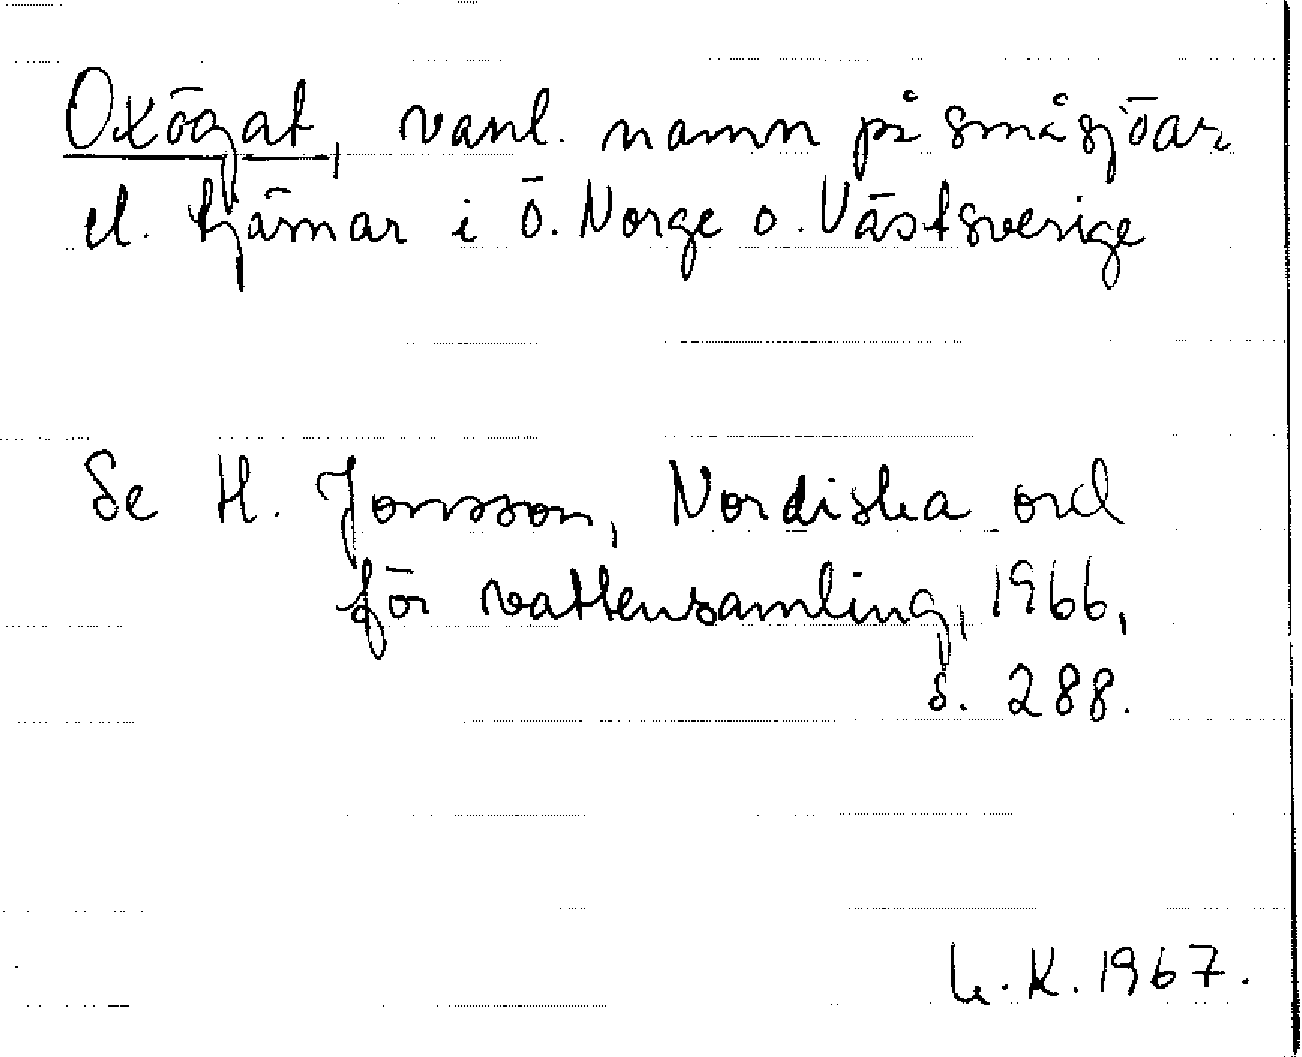 Oxögat, vanl. namn på småsjöar
el. tjärnar i ö. Norge o. Västsverige
Se H. Jonsson, Nordiska ord
för vattensamling, 1966,
s. 288.
K. 1967.